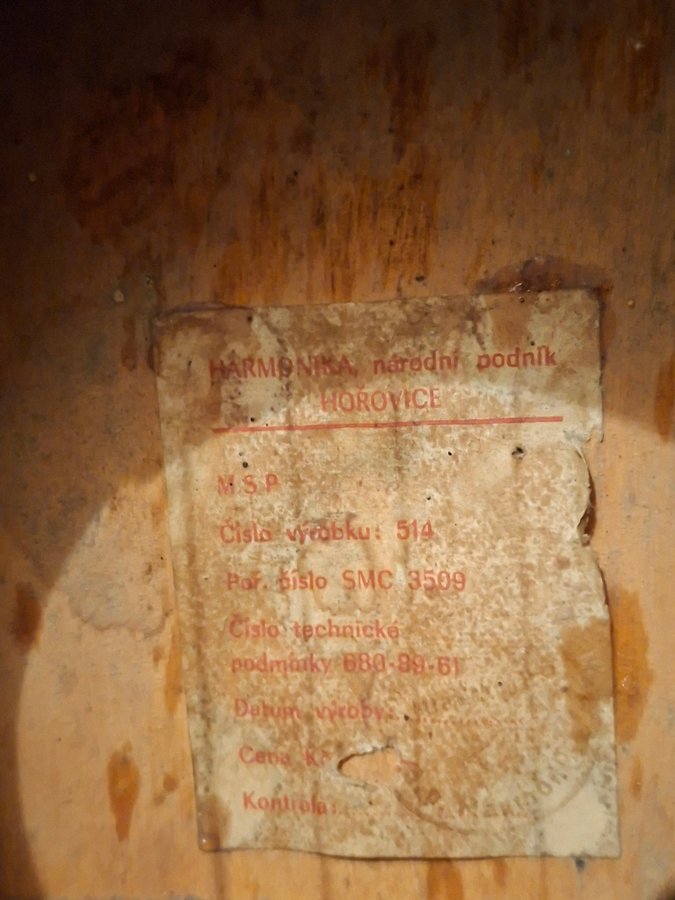 HARMONIKA, národní podnik
HOŘOVICE
M.S.P
Číslo výrobku: 514
Poř. číslo SMC 3509
Číslo technické
podmínky 680-89-61
Datum výroby:
Cena Kč
Kontrola: